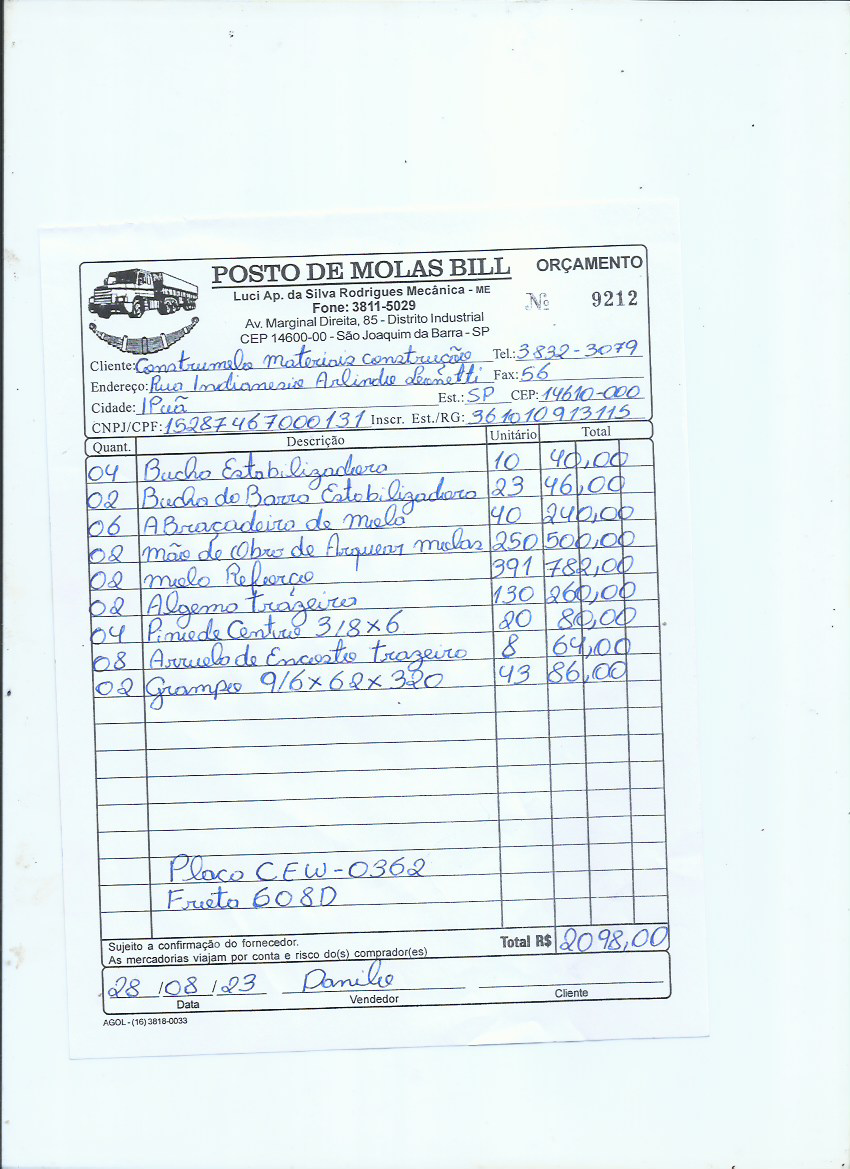 POSTO DE MOLAS BILL ORÇAMENTO
Luci Ap. da Silva Rodrigues Mecânica - ME
Nº 9212
Fone: 3811-5029
Av. Marginal Direita, 85 - Distrito Industrial
CEP 14600-00 - São Joaquim da Barra - SP
Cliente: Construmelo Materiais Construção Tel.: 3832-3079
Endereço: Rua Indianesio Arlindo Fax: 56
Cidade: IPuã Est.: SP CEP: 14610-000
CNPJ/CPF: 15287467000131 Inscr. Est./RG: 361010913115
Quant. Descrição Unitário Total
04 Bucha Estabilizadora 10 40,00
02 Bucha do Barra Estabilizadora 23 46,00
06 ABraçadeira de mola 40 240,00
02 mão de Obra de Arquear molas 250 500,00
02 mola Reforço 391 782,00
02 Algema trazeira 130 260,00
04 Pinede Centro 3/8x6 20 80,00
08 Arruela de Encosto trazeiro 8 64,00
02 Grampo 9/6x62x320 43 86,00
Placa CEW-0362
608D
Sujeito a confirmação do fornecedor.
As mercadorias viajam por conta e risco do(s) comprador(es)
Total R$ 2098,00
28/08/23 Danilo
Data Vendedor Cliente
AGOL - (16) 3818-0033